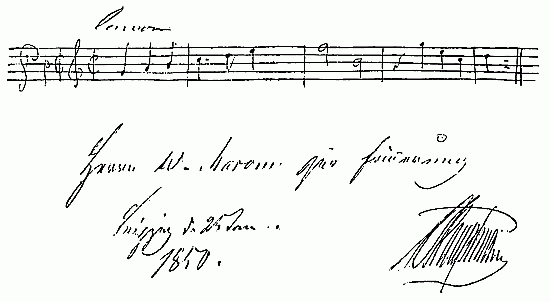 Canon
Herrn W. Mason zur Erinnerung
Leipzig d. 25 Jan.
1850.